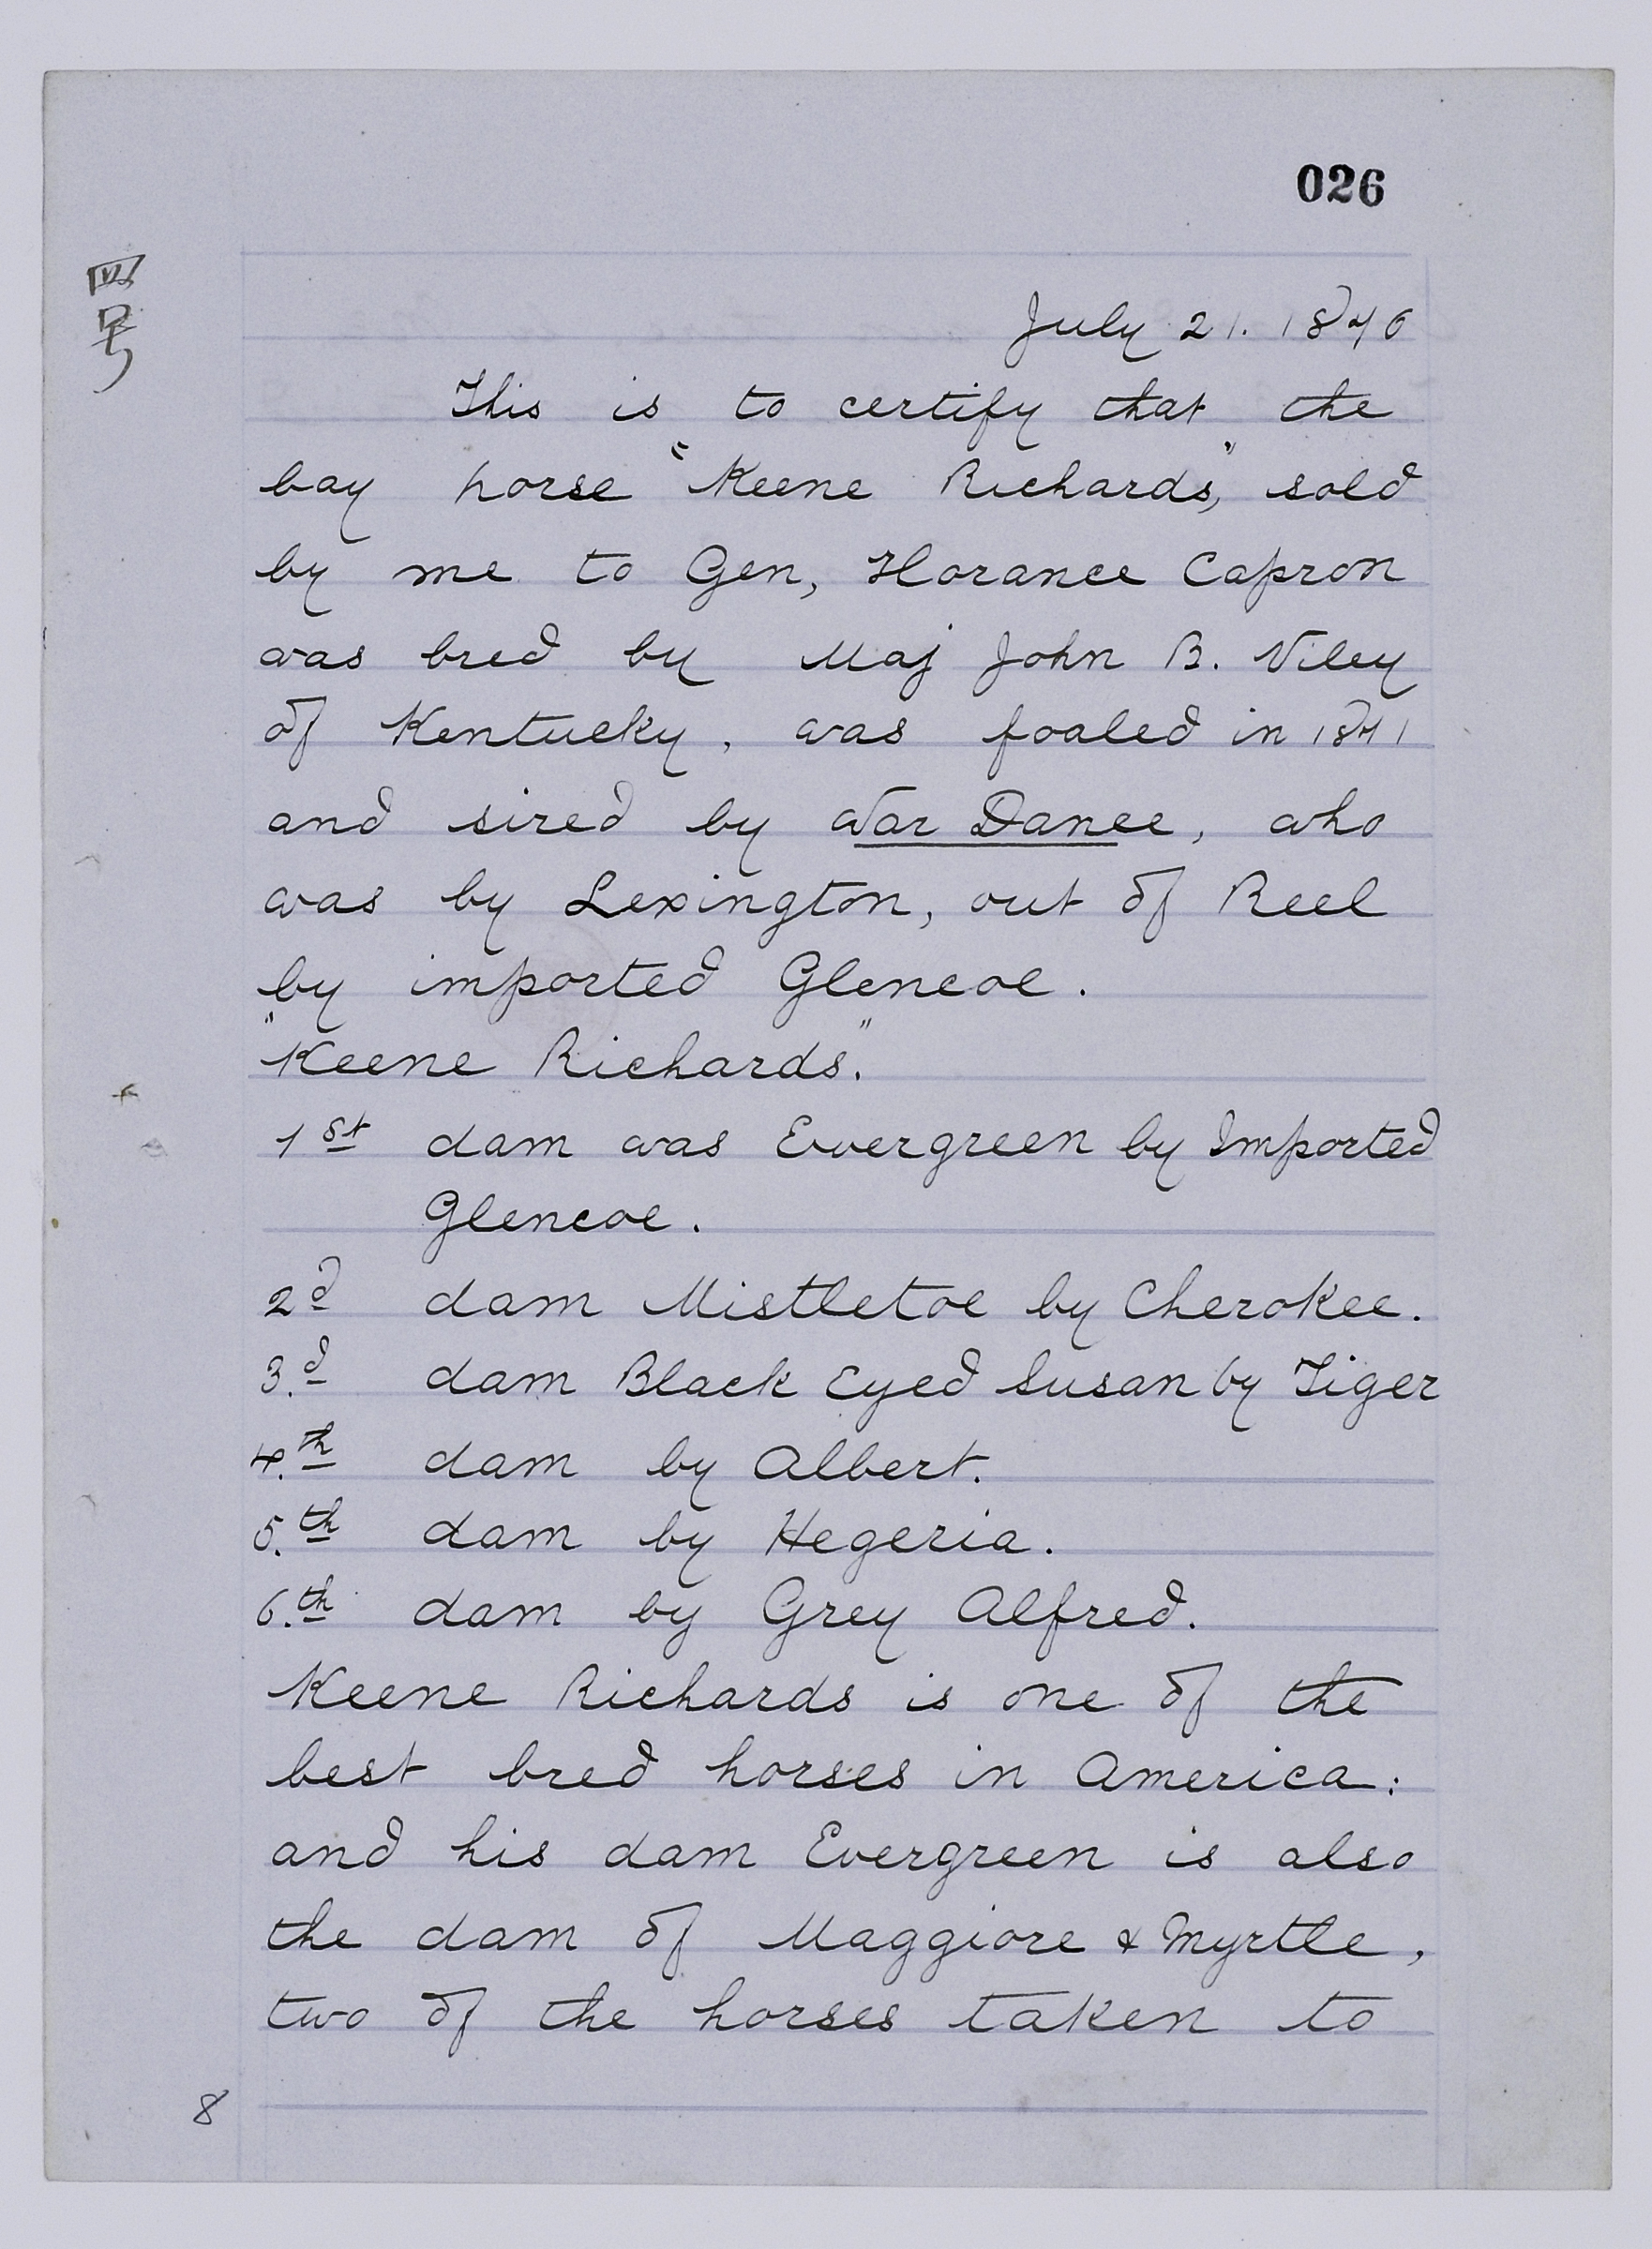 026
四号
July 21. 1876
This is to certify that the
bay horse "Keene Richards," sold
by me to Gen, Horance Capron
was bred by Maj John B. Viley
of Kentucky, was foaled in 1871
and sired by War Dance, who
was by Lexington, out of Reel
by imported Glencoe.
"Keene Richards."
1st dam was Evergreen by Imported
Glencoe.
2d dam Mistletoe by Cherokee.
3.d dam Black Eyed Susan by Tiger
4.th dam by Albert.
5.th dam by Hegeria.
6.th dam by Grey Alfred.
Keene Richards is one of the
best bred horses in America:
and his dam Evergreen is also
the dam of Maggiore & Myrtle,
two of the horses taken to
8